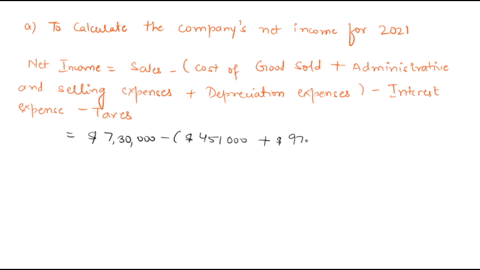 a) To Calculate the company's net income for 2021
Net Income = Sales - (cost of Good Sold + Administrative
and selling expenses + Depreciation expenses) - Interest
expense - Taxes
= $ 7,30,000 - ($ 451000 + $ 97